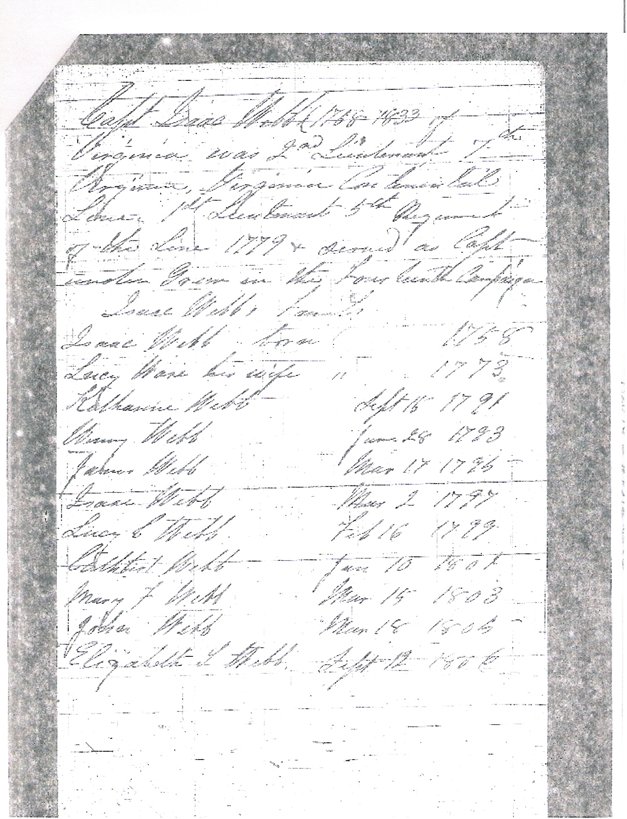 Capt Isaac Webb (1758-1833 of
Virginia was 2nd Lieutenant 7th
Virginia, Virginia Continental
Line. 1st Lieutenant 5th Regiment
of the Line 1779 & served as Capt
under Green in the Campaign
Isaac Webbs Family
Isaac Webb born 1758
Lucy Ware his wife " 1773
Katharine Webb Sept 15 1791
Winny Webb June 28 1793
James Webb Mar 17 1795
Isaac Webb Mar 2 1797
Lucy C Webb Feb 16 1799
Cuthbert Webb Jan 10 1801
Mary F Webb Mar 15 1803
John Webb Mar 18
Elizabeth S Webb. Sept 12